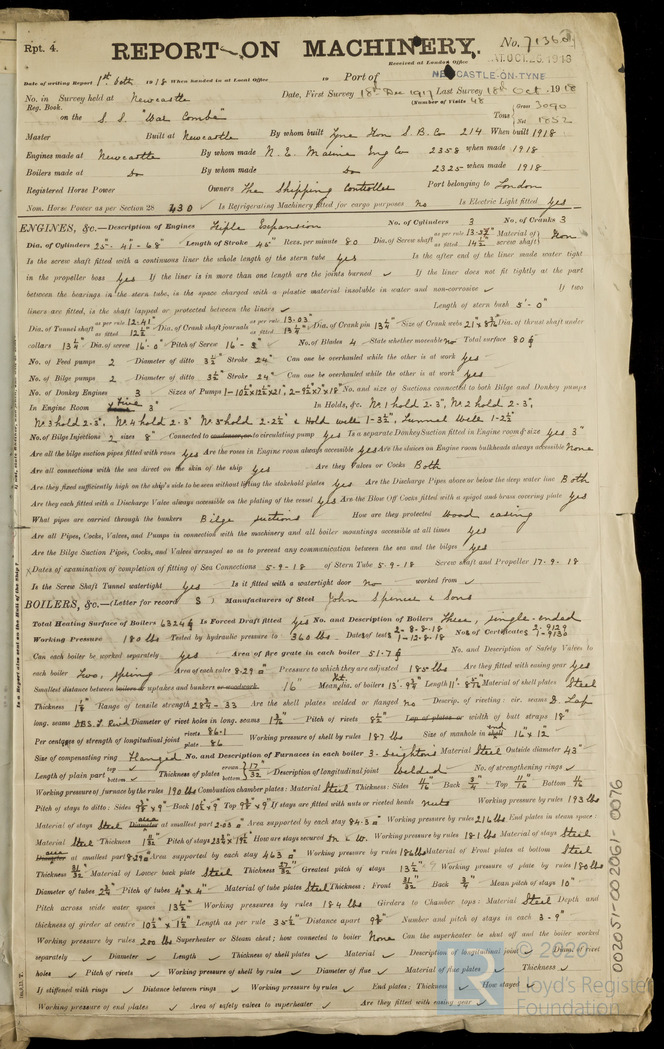 Rpt. 4.
REPORT ON MACHINERY.
No. 71360
Received at London Office
SAT. OCT. 26. 1918
NEWCASTLE-ON-TYNE
Date of writing Report 1st Octr. 1918 When handed in at Local Office 19 Port of
No. in Survey held at Newcastle Date, First Survey 18th Dec 1917 Last Survey 18th Oct. 1918
Reg. Book. (Number of Visits 48
on the S. S. "War Combe" Tons Gross 3090 Net 1852
Master Built at Newcastle By whom built Tyne Iron S. B. Co 214 When built 1918
Engines made at Newcastle By whom made N. E. Marine Eng Co 2358 when made 1918
Boilers made at Do By whom made Do 2325 when made 1918
Registered Horse Power Owners The Shipping Controller Port belonging to London
Nom. Horse Power as per Section 28 430 Is Refrigerating Machinery fitted for cargo purposes No Is Electric Light fitted Yes
ENGINES, &c.—Description of Engines Triple Expansion No. of Cylinders 3 No. of Cranks 3
Dia. of Cylinders 25"-41"-68" Length of Stroke 45" Revs. per minute 80 Dia. of Screw shaft as per rule 13.57" as fitted 14½" Material of screw shaft Iron
Is the screw shaft fitted with a continuous liner the whole length of the stern tube Yes Is the after end of the liner made water tight
in the propeller boss Yes If the liner is in more than one length are the joints burned ✓ If the liner does not fit tightly at the part
between the bearings in the stern tube, is the space charged with a plastic material insoluble in water and non-corrosive ✓ If two
liners are fitted, is the shaft lapped or protected between the liners ✓ Length of stern bush 5'-0"
Dia. of Tunnel shaft as per rule 12.41" as fitted 12½" Dia. of Crank shaft journals as per rule 13.03" as fitted 13¼" Dia. of Crank pin 13¼" Size of Crank webs 21"x8⅜" Dia. of thrust shaft under
collars 13¼" Dia. of screw 16'-0" Pitch of Screw 16'-3" No. of Blades 4 State whether moveable no Total surface 80
No. of Feed pumps 2 Diameter of ditto 3½" Stroke 24" Can one be overhauled while the other is at work Yes
No. of Bilge pumps 2 Diameter of ditto 3½" Stroke 24" Can one be overhauled while the other is at work Yes
No. of Donkey Engines 3 Sizes of Pumps No. and size of Suctions connected to both Bilge and Donkey pumps
In Engine Room Five 3" In Holds, &c. No 1 hold 2-3", No 2 hold 2-3",
No 3 hold 2-3", No 4 hold 2-3" No 5 hold 2-2½" & Hold well 1-3½", Tunnel well 1-2½"
No. of Bilge Injections 2 sizes 8" Connected to condenser, or to circulating pump Yes Is a separate Donkey Suction fitted in Engine room & size Yes 3"
Are all the bilge suction pipes fitted with roses Yes Are the roses in Engine room always accessible Yes Are the sluices on Engine room bulkheads always accessible None
Are all connections with the sea direct on the skin of the ship Yes Are they Valves or Cocks Both
Are they fixed sufficiently high on the ship's side to be seen without lifting the stokehold plates Yes Are the Discharge Pipes above or below the deep water line Both
Are they each fitted with a Discharge Valve always accessible on the plating of the vessel Yes Are the Blow Off Cocks fitted with a spigot and brass covering plate Yes
What pipes are carried through the bunkers Bilge suctions How are they protected Wood casing
Are all Pipes, Cocks, Valves, and Pumps in connection with the machinery and all boiler mountings accessible at all times Yes
Are the Bilge Suction Pipes, Cocks, and Valves arranged so as to prevent any communication between the sea and the bilges Yes
Dates of examination of completion of fitting of Sea Connections 5-9-18 of Stern Tube 5-9-18 Screw shaft and Propeller 17-9-18
Is the Screw Shaft Tunnel watertight Yes Is it fitted with a watertight door No worked from ✓
BOILERS, &c.—(Letter for record S) Manufacturers of Steel John Spencer & Sons
Total Heating Surface of Boilers 6324 Is Forced Draft fitted Yes No. and Description of Boilers Three, single-ended
Working Pressure 180 lbs Tested by hydraulic pressure to 360 lbs Date of test 2-8-8-18 1-12-8-18 No. of Certificates 2-9129 1-9130
Can each boiler be worked separately Yes Area of fire grate in each boiler 51.7 No. and Description of Safety Valves to
each boiler Two, spring Area of each valve 8.29 Pressure to which they are adjusted 185 lbs Are they fitted with easing gear Yes
Smallest distance between boilers or uptakes and bunkers or woodwork 16" Mean dia. of boilers 13'-9¾" Length Material of shell plates Steel
Thickness Range of tensile strength 28¾-33 Are the shell plates welded or flanged no Descrip. of riveting: cir. seams D. Lap
long. seams DBS. T. Rivd Diameter of rivet holes in long. seams Pitch of rivets 8½" Lap of plates or width of butt straps 18"
Per centages of strength of longitudinal joint rivets 86.1 plate 86 Working pressure of shell by rules 187 lbs Size of manhole in end shell 16"x12"
Size of compensating ring Flanged No. and Description of Furnaces in each boiler 3-Deightons Material Steel Outside diameter 43"
Length of plain part top ✓ bottom ✓ Thickness of plates crown bottom 17/32" Description of longitudinal joint Welded No. of strengthening rings ✓
Working pressure of furnace by the rules 190 lbs Combustion chamber plates: Material Steel Thickness: Sides 11/16" Back ¾" Top 11/16" Bottom 11/16"
Pitch of stays to ditto: Sides Back 10⅛"x9" Top If stays are fitted with nuts or riveted heads nuts Working pressure by rules 193 lbs
Material of stays Steel Diameter area at smallest part 2.03 Area supported by each stay 84.3 Working pressure by rules 216 lbs End plates in steam space:
Material Steel Thickness Pitch of stays How are stays secured Dn & W. Working pressure by rules 181 lbs Material of stays Steel
Diameter area at smallest part 8.29 Area supported by each stay 463 Working pressure by rules 186 lbs Material of Front plates at bottom Steel
Thickness 31/32" Material of Lower back plate Steel Thickness 27/32" Greatest pitch of stays 13½" Working pressure of plate by rules 180 lbs
Diameter of tubes 2¾" Pitch of tubes 4"x4" Material of tube plates Steel Thickness: Front 31/32" Back ¾" Mean pitch of stays 10"
Pitch across wide water spaces 13½" Working pressures by rules 184 lbs Girders to Chamber tops: Material Steel Depth and
thickness of girder at centre Length as per rule 35½" Distance apart 9⅜" Number and pitch of stays in each 3-9"
Working pressure by rules 200 lbs Superheater or Steam chest; how connected to boiler None Can the superheater be shut off and the boiler worked
separately ✓ Diameter ✓ Length ✓ Thickness of shell plates ✓ Material ✓ Description of longitudinal joint ✓ Diam. of rivet
holes ✓ Pitch of rivets ✓ Working pressure of shell by rules ✓ Diameter of flue ✓ Material of flue plates ✓ Thickness ✓
If stiffened with rings ✓ Distance between rings ✓ Working pressure by rules ✓ End plates: Thickness ✓ How stayed ✓
Working pressure of end plates ✓ Area of safety valves to superheater ✓ Are they fitted with easing gear ✓
002051-002061-0076
© 2020
Lloyd's Register
Foundation